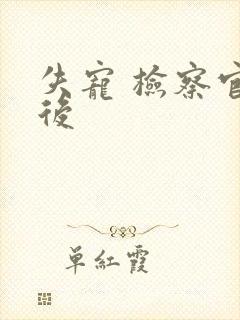 失寵 檢察官
後
單紅霞